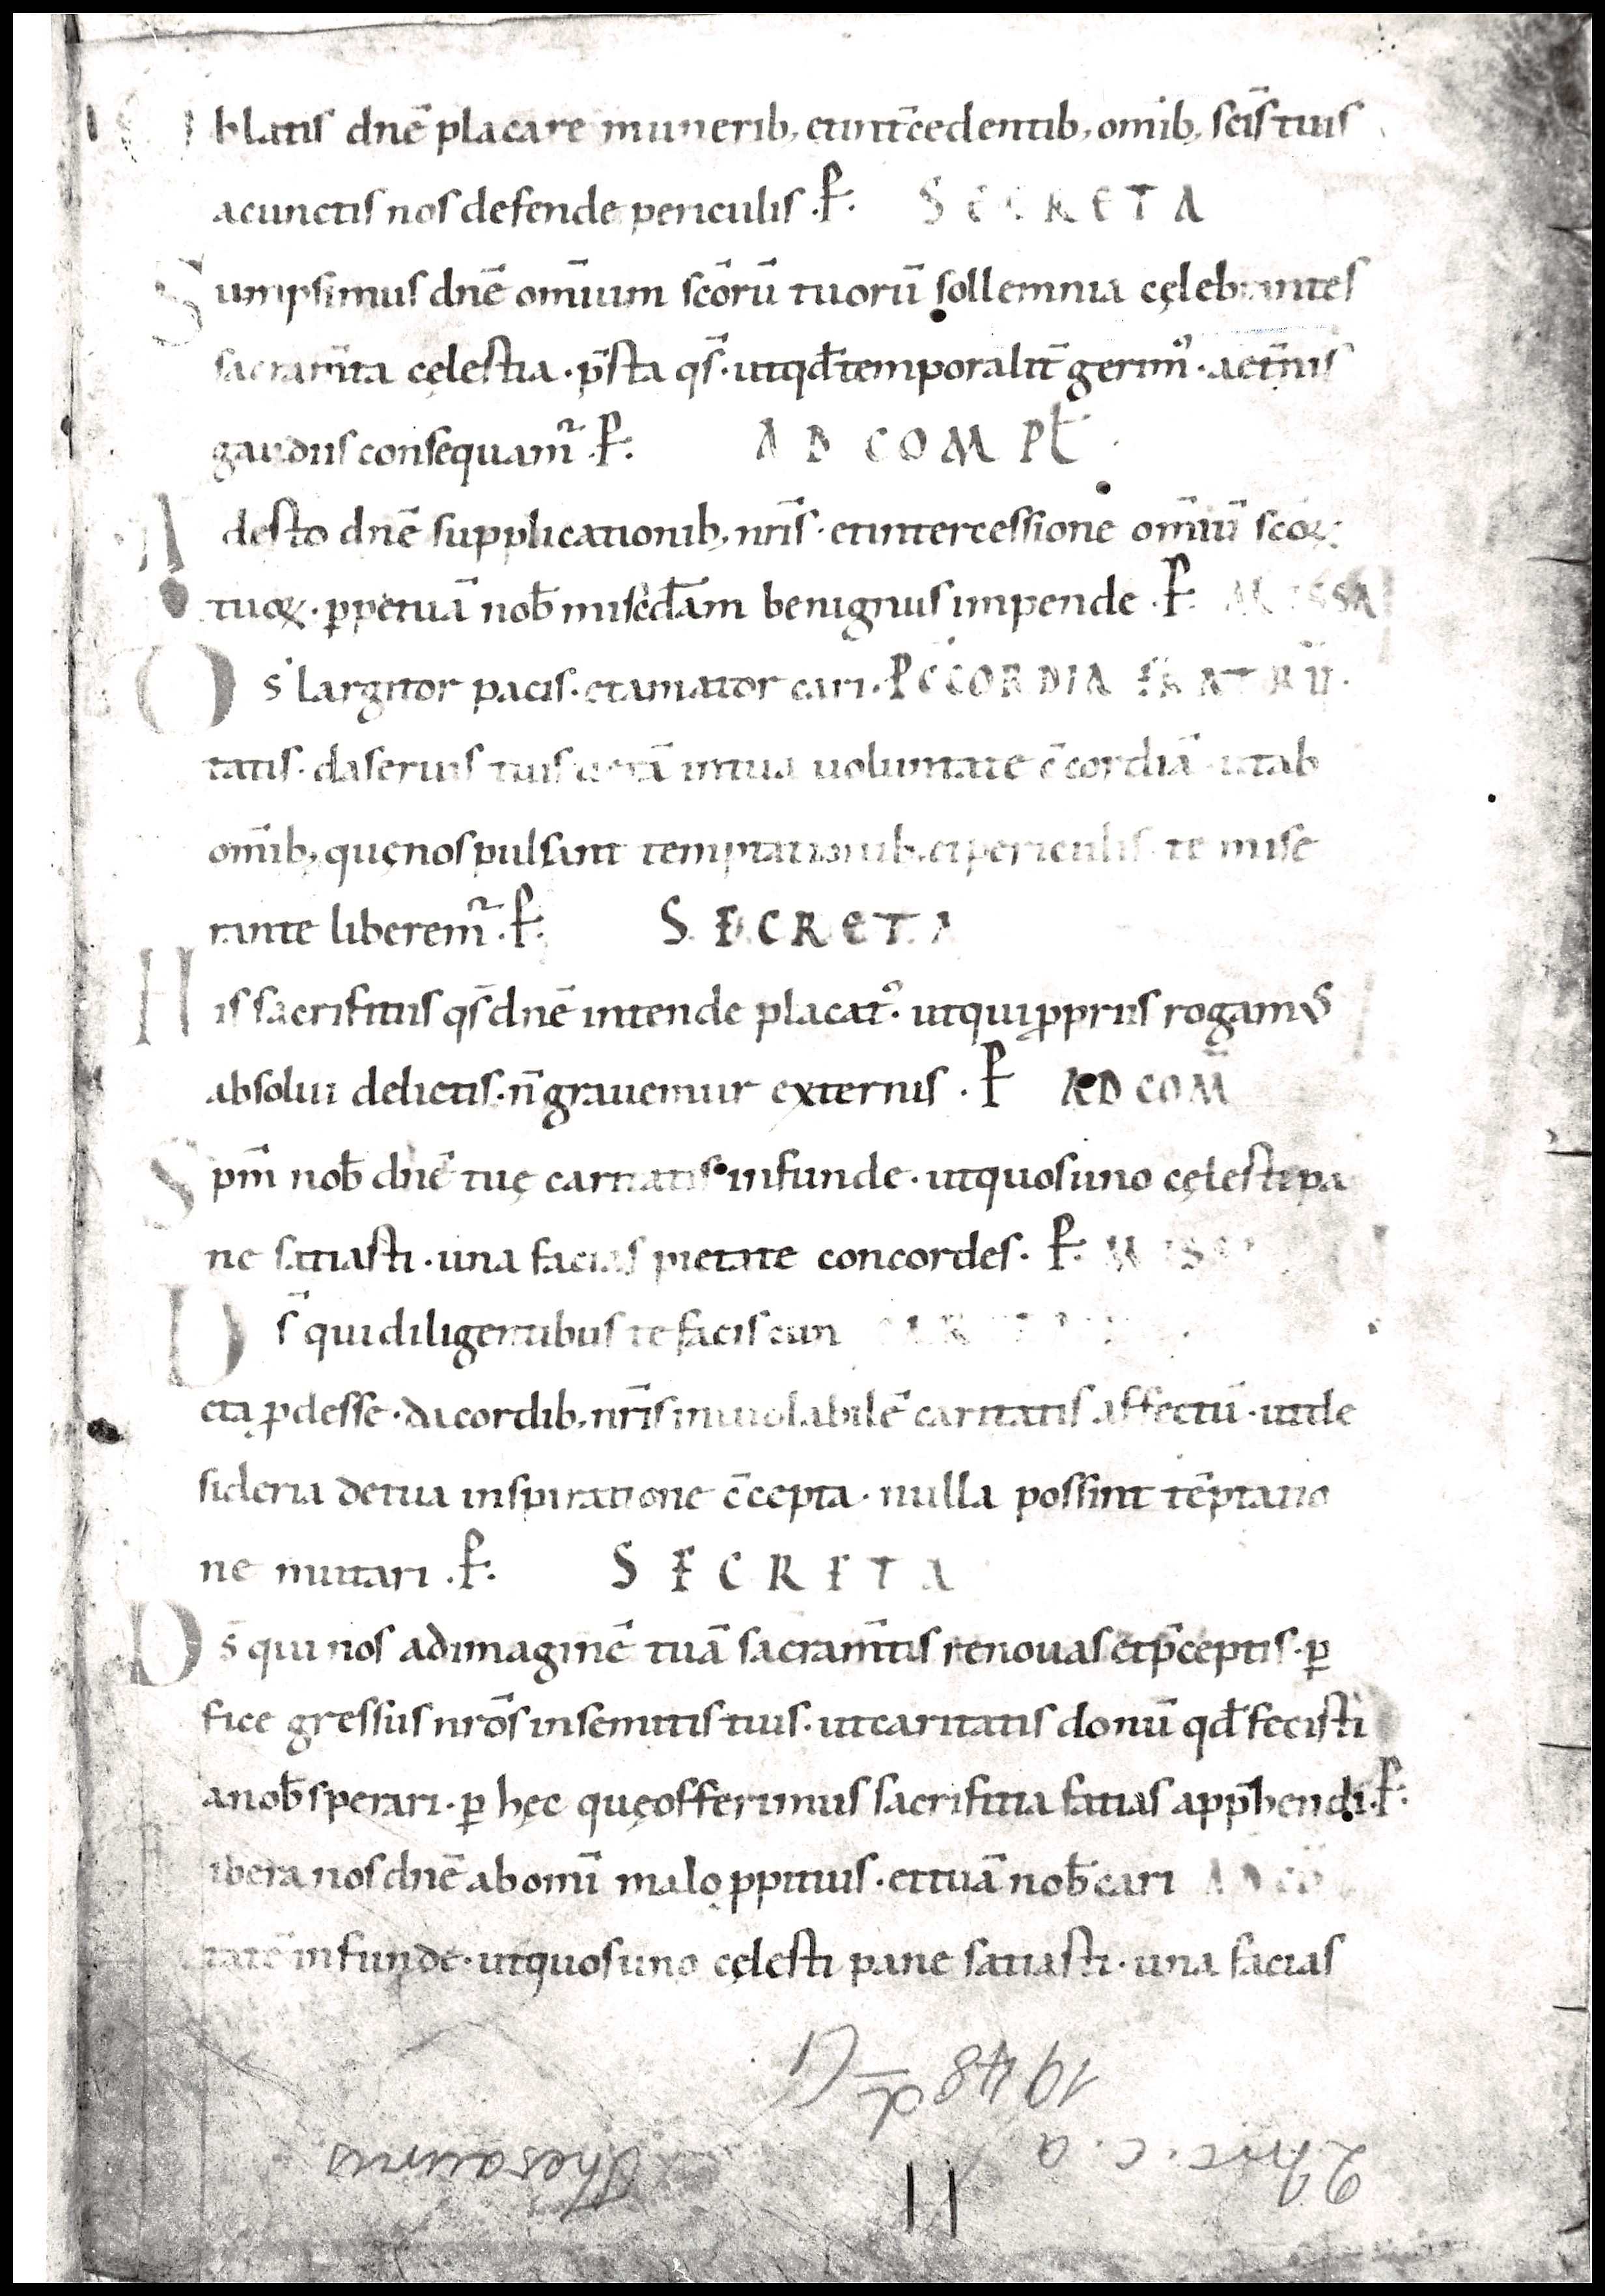 Oblatis dnē placare munerib; et int̄cedentib; om̄ib; scīs tuis
a cunctis nos defende periculis . P̄ . SECRETA
Sumpsimus dnē om̄ium scōrū tuorū sollemnia cęlebrantes
sacram̄ta cęlestia · p̄sta qs̄ · ut qđ temporalit̄ gerim᾿ · aet̄nis
gaudiis consequam̃ . P̄ . AD COMPŁ
Adesto dnē supplicationib; nr̄is · et intercessione om̄iū scōꝝ
tuoꝝ · ꝑpetuā nob̄ misēđam benignus impende . P̄ . MISSA
Ds̄ largitor pacis · et amator cari · P C̄CORDIA FRATRŪ ·
tatis · da seruis tuis uerā in tua uoluntate c̄cordiā · ut ab
om̄ib; quę nos pulsant temptationib; et periculis · te mise
rante liberem̃ . P̄ . SECRETA
His sacrifitiis qs̄ dnē intende placat᾿ · ut qui ꝓpriis rogamus
absolui delictis · n̄ grauemur externis . P̄ AD COM̄
Spm̄ nob̄ dnē tuę caritatis infunde · ut quos uno cęlesti pa
ne satiasti · una facias pietate concordes · P̄ . MISSA
Ds̄ qui diligentibus te facis cun
cta ꝓdesse · da cordib; nr̄is inuiolabilē caritatis affectū · ut de
sideria de tua inspiratione c̄cepta · nulla possint tēptatio
ne mutari . P̄ . SECRETA
Ds̄ qui nos ad imaginē tuā sacram̄tis renouas et p̄ceptis · ꝑ
fice gressus nrōs in semitis tuis · ut caritatis donū qđ fecisti
a nob̄ sperari · ꝑ hęc quę offerimus sacrifitia fatias app̄hendi . P̄ .
ibera nos dnē ab om̄i malo ꝓpitius · et tuā nob̄ cari AD CO
tatē infunde · ut quos uno cęlesti pane satiasti · una facias
1948
Thesaurus